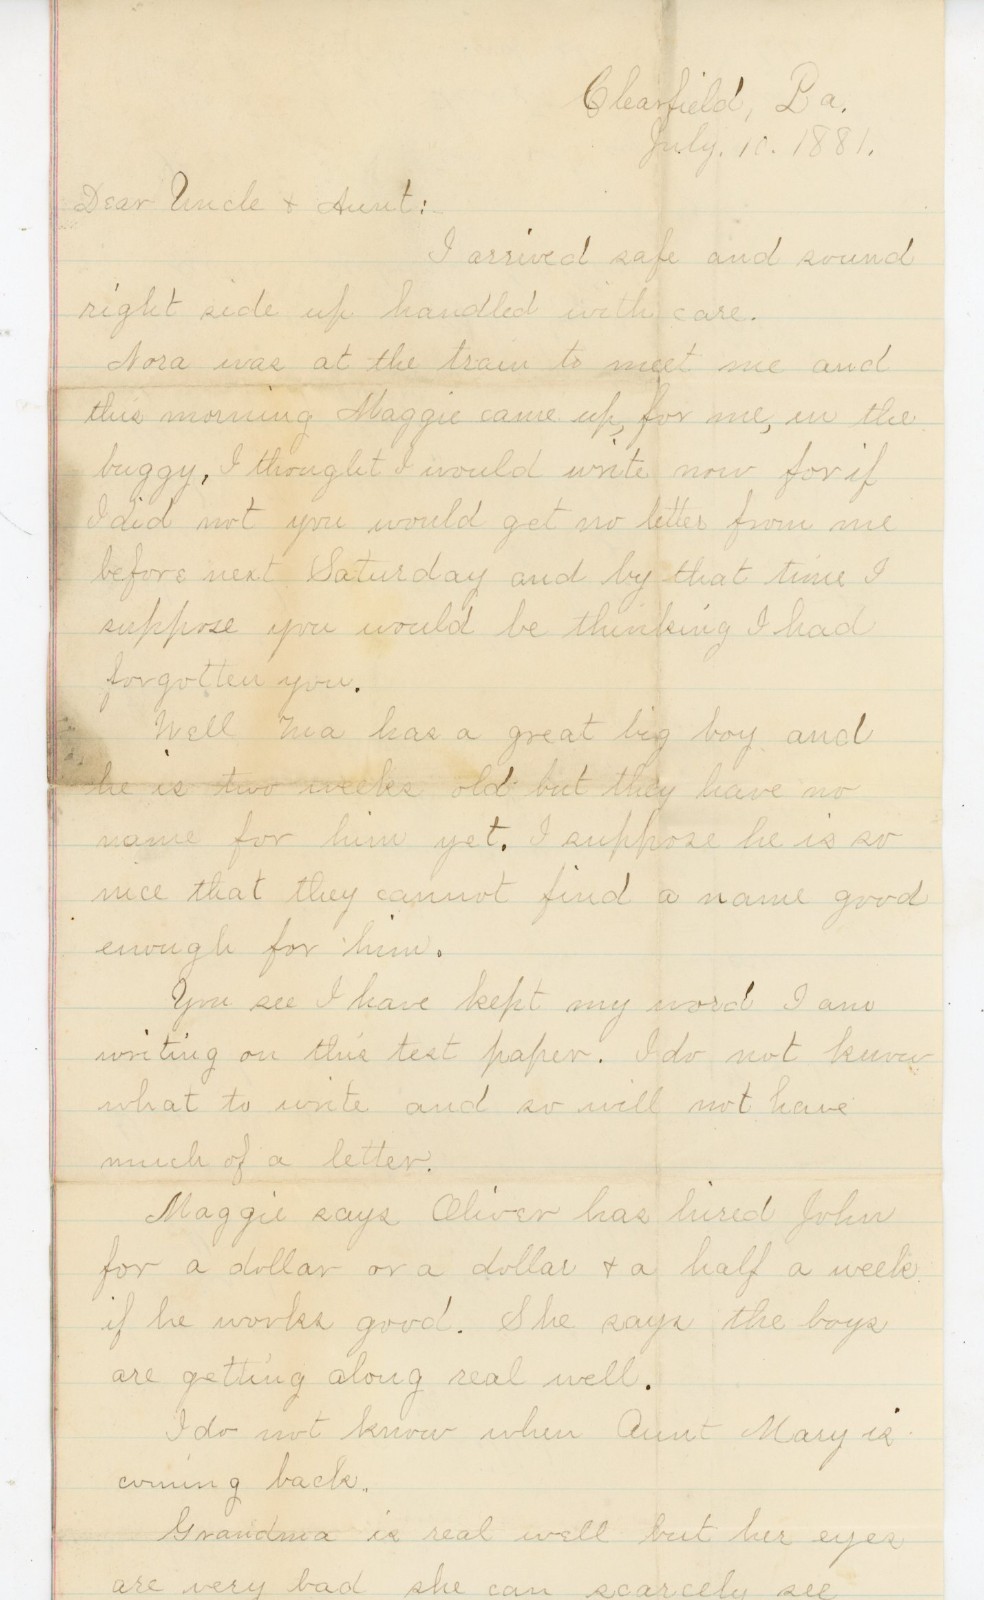 Clearfield, Pa.
July. 10. 1881.
Dear Uncle & Aunt:
I arrived safe and sound
right side up handled with care.
Nora was at the train to meet me and
this morning Maggie came up, for me, in the
buggy, I thought I would write now for if
I did not you would get no letter from me
before next Saturday and by that time I
suppose you would be thinking I had
forgotten you.
Well Ma has a great big boy and
he is two weeks old but they have no
name for him yet. I suppose he is so
nice that they cannot find a name good
enough for him.
You see I have kept my word I am
writing on this test paper. I do not know
what to write and so will not have
much of a letter.
Maggie says Oliver has hired John
for a dollar or a dollar & a half a week
if he works good. She says the boys
are getting along real well.
I do not know when Aunt Mary is
coming back.
Grandma is real well but her eyes
are very bad she can scarcely see